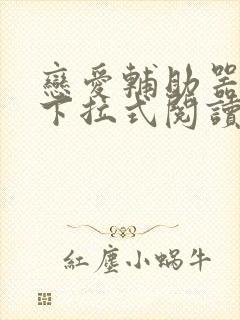 戀愛輔助器
下拉式閱讀
紅塵小蝸牛